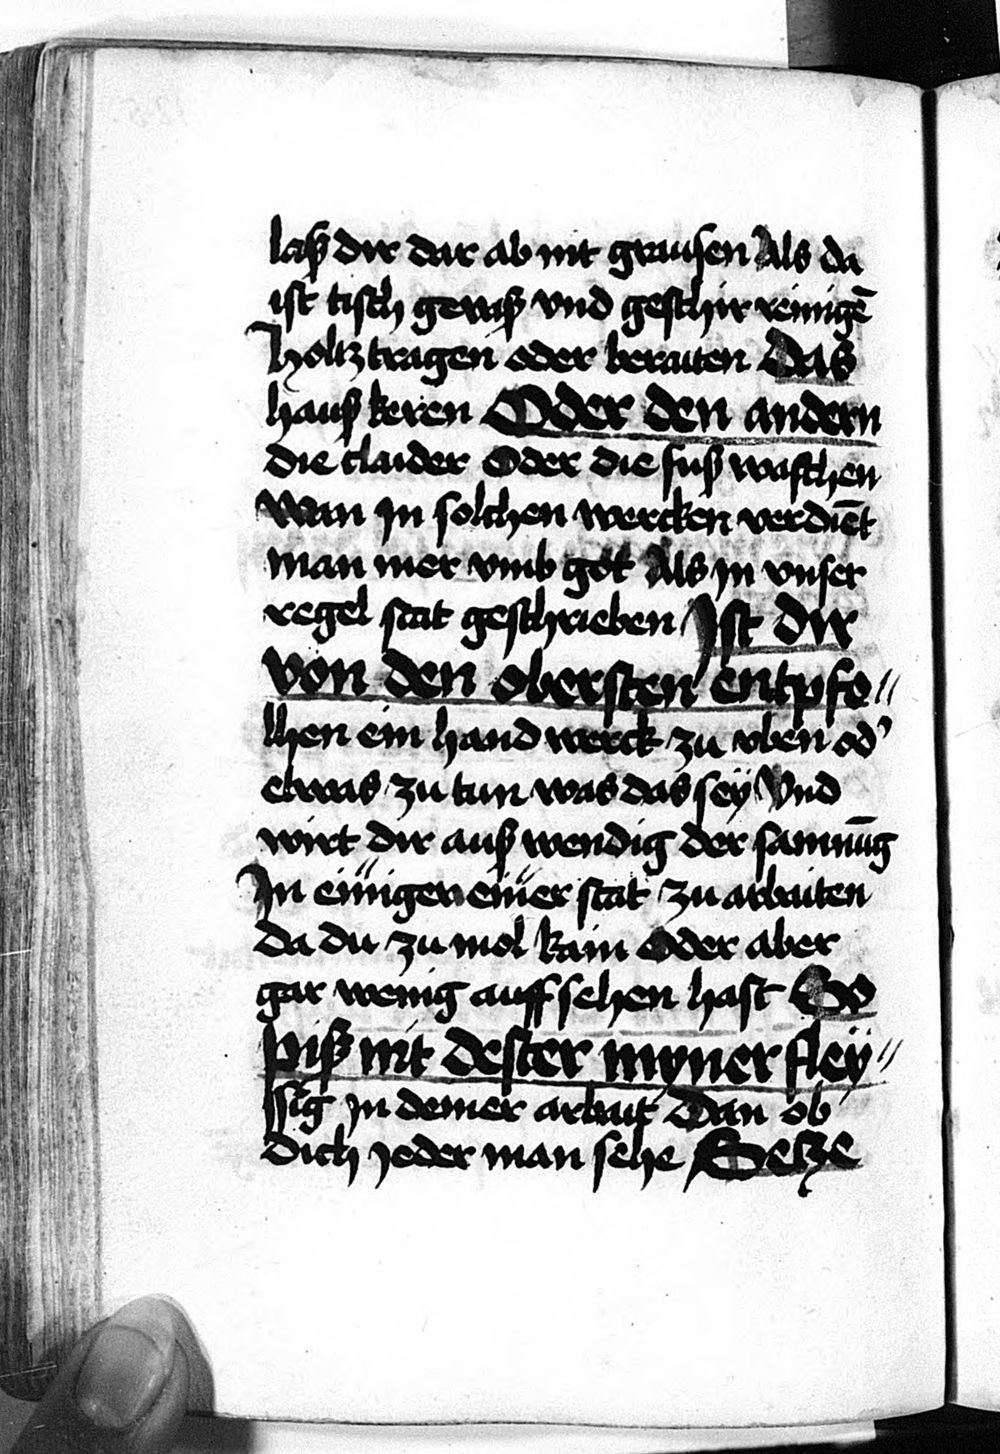 laß dir dar ab nit grausen Als da
ist tisch gewaß vnd geschir reinigē
holtz tragen oder beraiten Das
hauß keren Oder den andern
die claider Oder die fuß waschen
Wan jn solchen wercken verdiēt
man mer vmb got Als jn vnser
regel stat geschrieben Ist dir
von den obersten entpfo〃
lhen ein hand werck zu vben od'
etwas zu tun was das sey Vnd
wirt dir auß wendig der samnūg
In einigen einer stat zu arbaiten
da du zu mol kain Oder aber
gar wenig auff sehen hast So
piß nit dester mynner fley〃
ssig jn deiner arbait Dan ob
dich jeder man sehe Setze